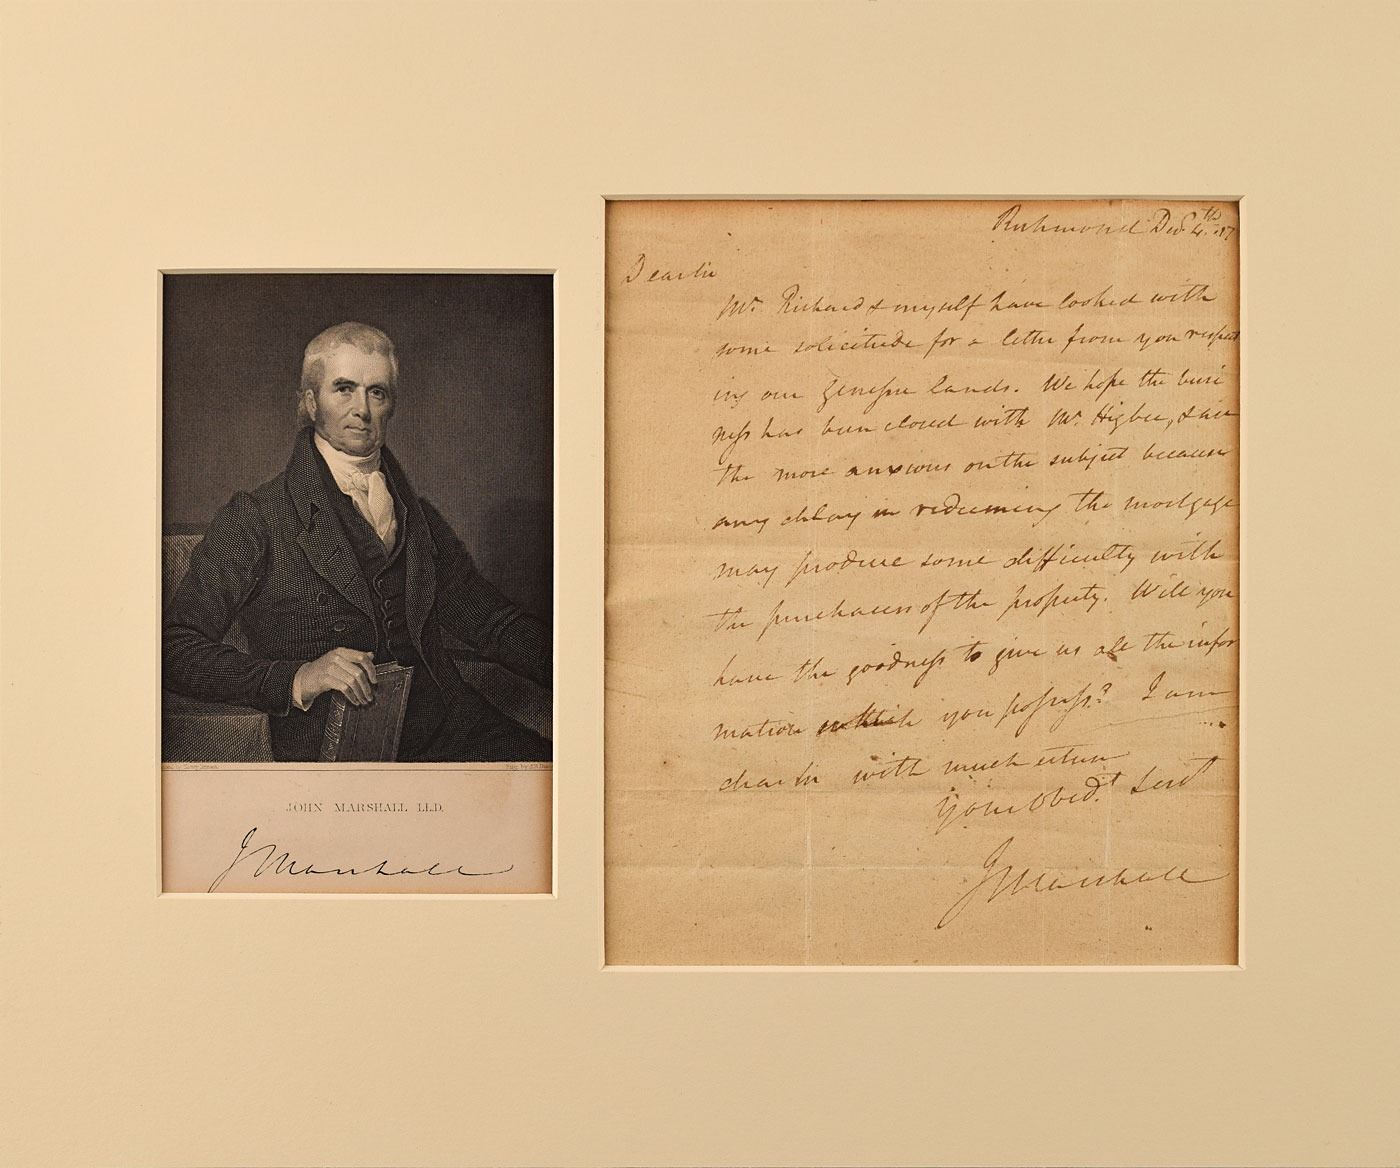 JOHN MARSHALL LL.D.
J Marshall
Richmond Decr. 4th. 17
Dear Sir
Mr. Richard & myself have looked with
some solicitude for a letter from you respect
ing our Genessee lands. We hope the busi
ness has been closed with Mr. Higbee, & are
the more anxious on the subject because
any delay in redeeming the mortgage
may produce some difficulty with
the purchasers of the property. Will you
have the goodness to give us all the infor
mation which you possess? I am
dear Sir with much esteem
Your Obedt. Servt
J Marshall